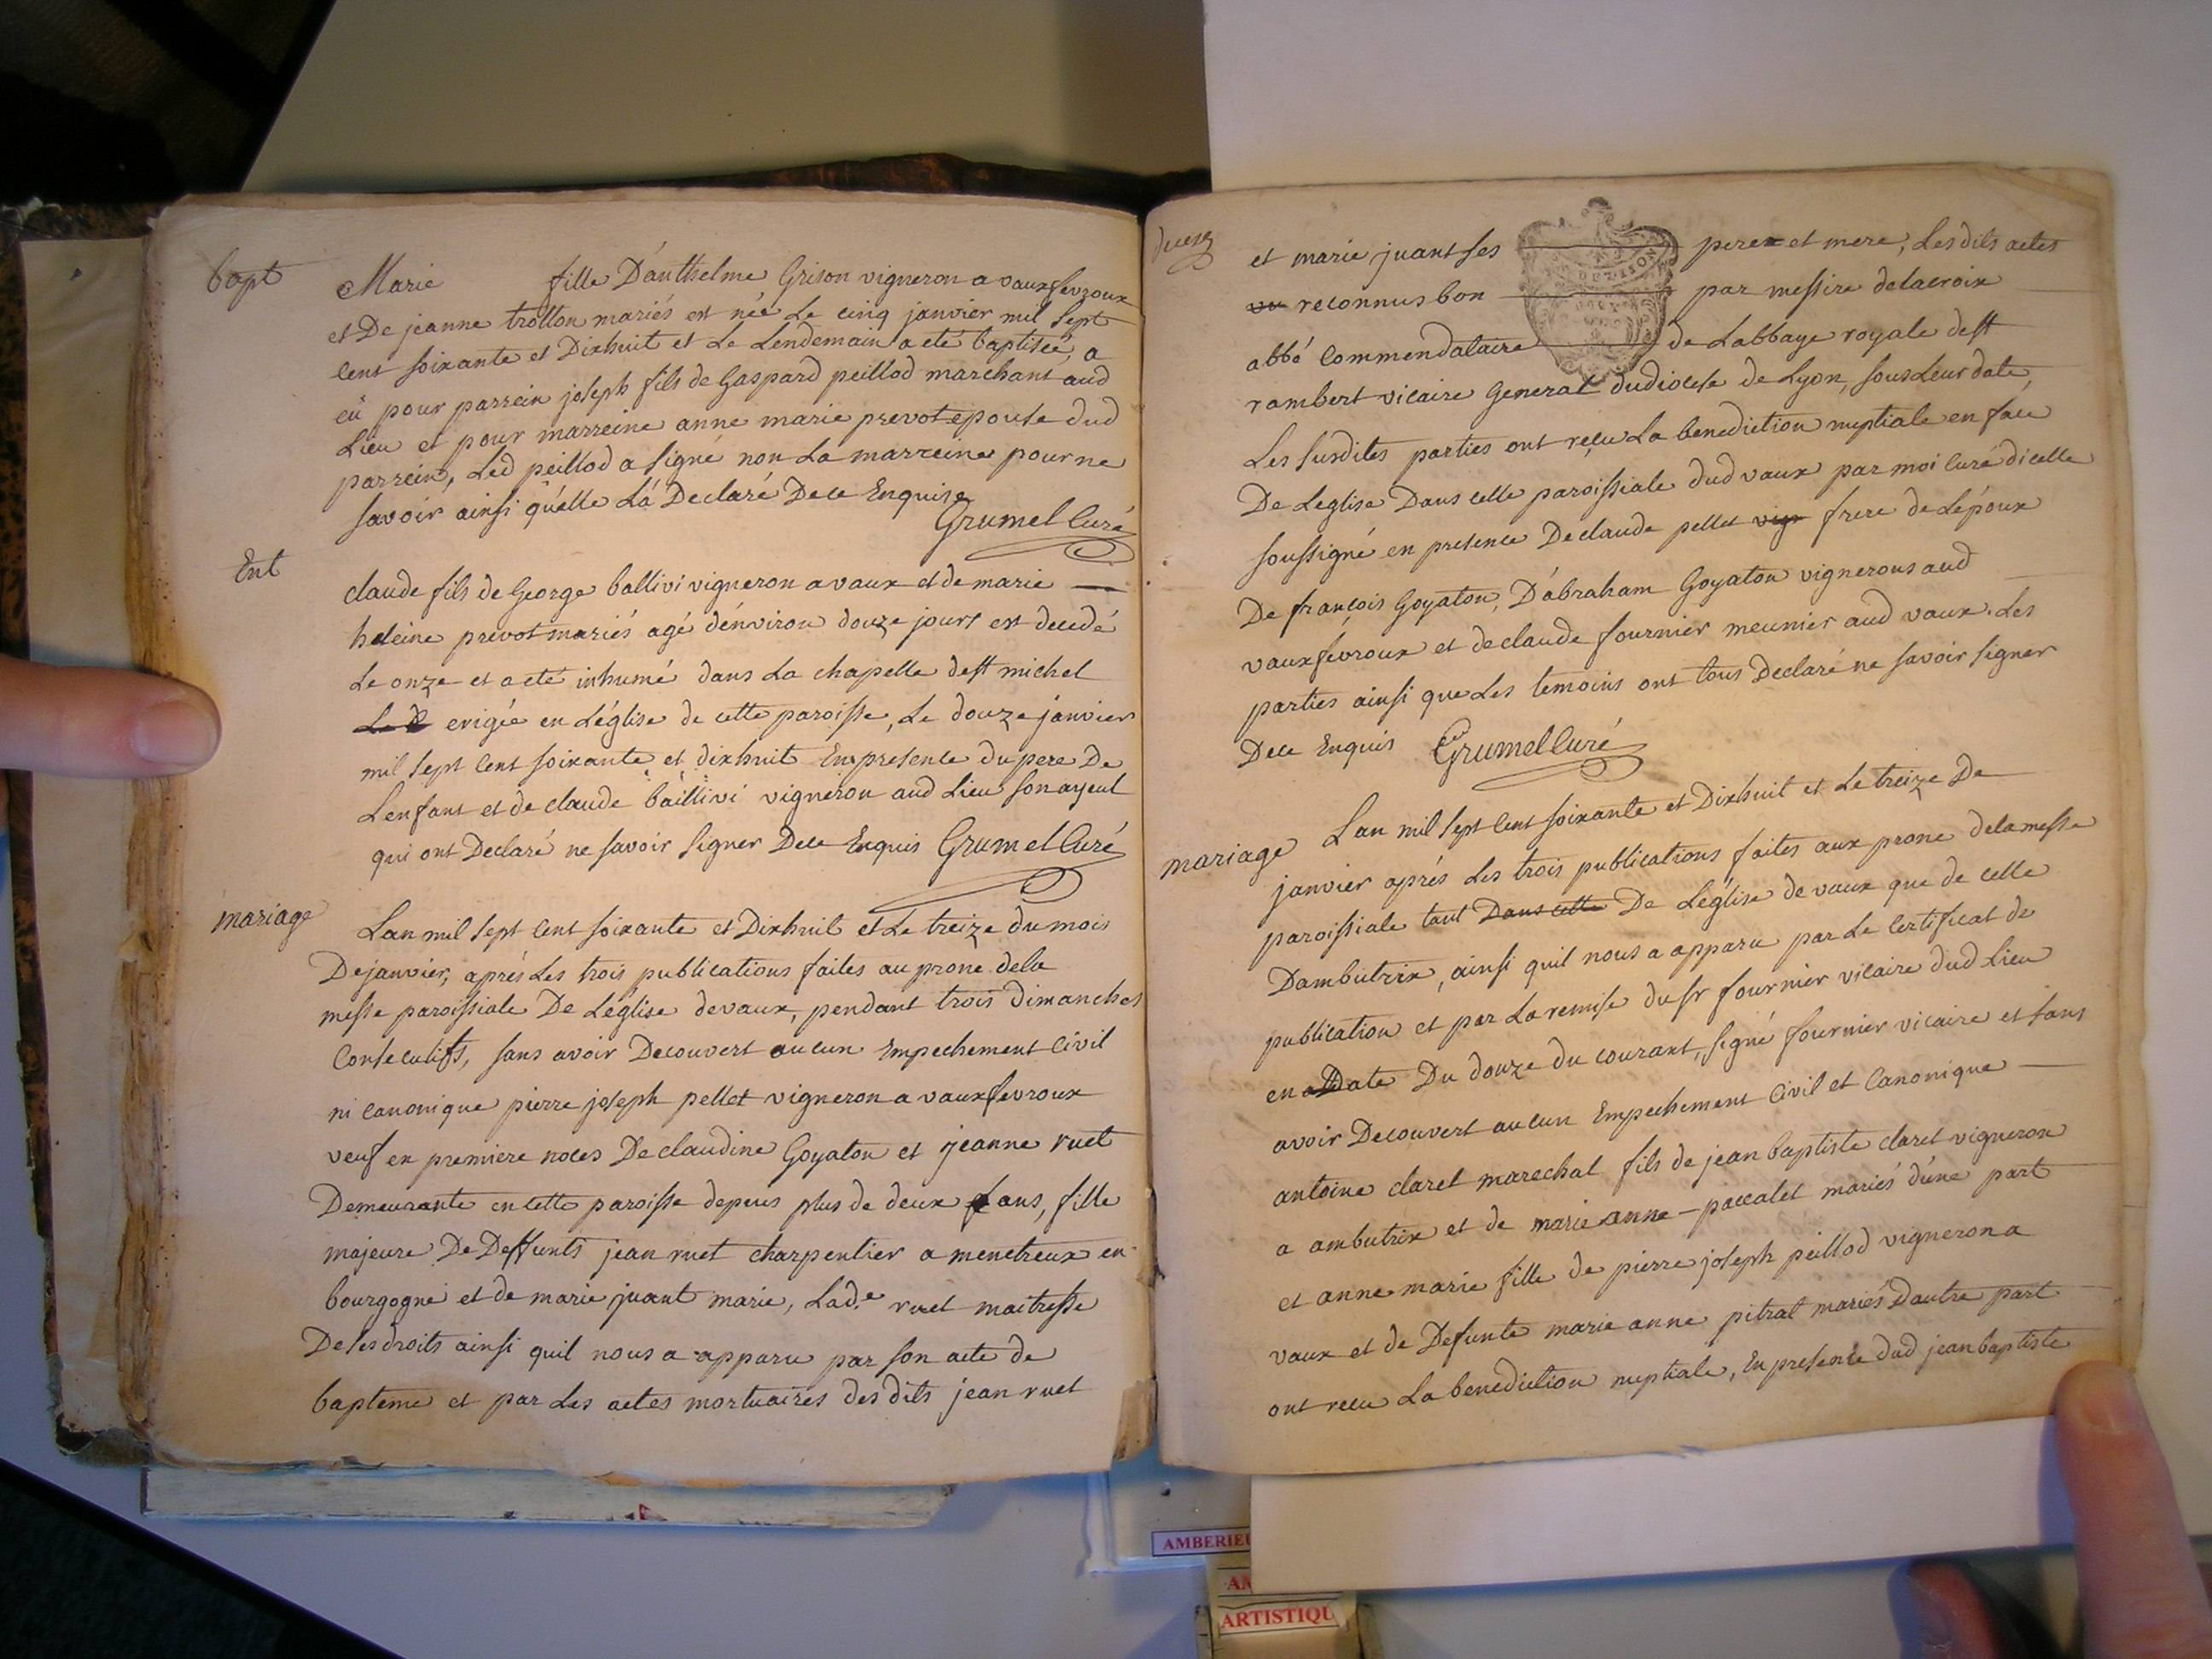 bapt
Marie fille D'anthelme Grison vigneron a vauxfevroux
et De jeanne trollon mariés est née Le cinq janvier mil Sept
cent soixante et Dixhuit et Le Lendemain a eté baptisée, a
eü pour parrein joseph fils de Gaspard peillod marchant aud
Lieu et pour marreine anne marie prevot epouse dud
parrein, Led peillod a signé non La marreine pour ne
savoir ainsi qu'elle L'a Declaré De ce Enquise
Grumel Curé
Ent
claude fils de George ballivi vigneron a vaux et de marie
heleine prevot mariés agé d'environ douze jours est decedé
Le onze et a eté inhumé dans La chapelle de st michel
Le d erigée en L'église de cette paroisse, Le douze janvier
mil sept cent soixante et dixhuit En presence du pere De
L'enfant et de claude baillivi vigneron aud Lieu son ayeul
qui ont Declaré ne savoir signer De ce Enquis Grumel Curé
mariage
L'an mil sept cent soixante et Dixhuit et Le treize du mois
De janvier, après Les trois publications faites au prone dela
messe paroissiale De L'eglise de vaux, pendant trois dimanches
Consecutifs, sans avoir Decouvert aucun Empechement Civil
ni canonique pierre joseph pellet vigneron a vauxfevroux
veuf en premiere noces De claudine Goyaton et jeanne ruet
Demeurante en cette paroisse depuis plus de deux ans, fille
majeure De Deffunts jean ruet charpentier a menetreux en
bourgogne et de marie juant marie, Lad.e ruet maitresse
De ses droits ainsi quil nous a apparu par son acte de
bapteme et par Les actes mortuaires des dits jean ruet
et marie juant ses pere et mere, Les dits actes
reconnus bon par messire delacroix
abbé Commendataire de L'abbaye royale de st
rambert vicaire General du diocese de Lyon, sous Leur date,
Les susdites parties ont reçu La benediction nuptiale en face
De L'eglise Dans celle paroissiale dud vaux par moi Curé d'icelle
soussigné en presence De claude pellet vign frere de L'époux
De françois Goyaton, D'abraham Goyaton vignerons aud
vauxfevroux et de claude fournier meunier aud vaux. Les
parties ainsi que Les temoins ont tous Declaré ne savoir signer
De ce Enquis Grumel Curé
mariage
L'an mil sept cent soixante et Dixhuit et Le treize De
janvier après Les trois publications faites aux prone dela messe
paroissiale tant Dans cette De L'église de vaux que de celle
D'ambutrix, ainsi quil nous a apparu par Le Certificat de
publication et par La remise du sr fournier vicaire dud Lieu
en Date Du douze du courant, signé fournier vicaire et sans
avoir Decouvert aucun Empechement Civil et Canonique
antoine claret marechal fils de jean baptiste claret vigneron
a ambutrix et de marie anne paccalet mariés d'une part
et anne marie fille de pierre joseph peillod vigneron a
vaux et de Defunte marie anne pitrat mariés D'autre part
ont reçu La benediction nuptiale, En presence dud jean baptiste
AMBERIEU
ARTISTIQU